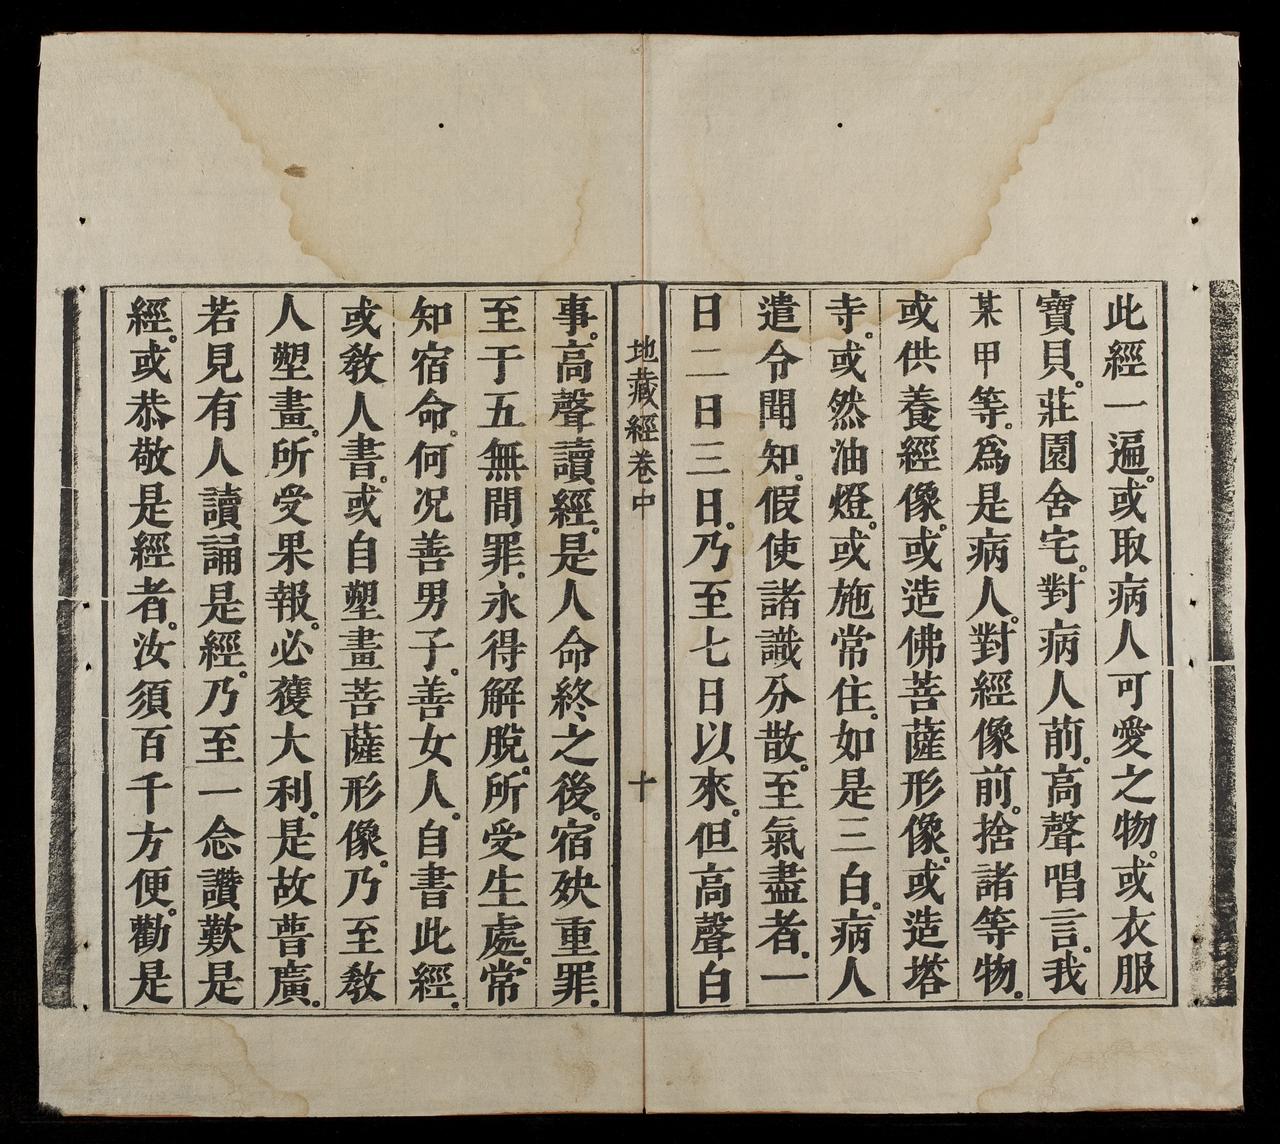 此經一遍。或取病人可愛之物。或衣服
寶貝。莊園舍宅。對病人前。高聲唱言。我
某甲等。爲是病人。對經像前。捨諸等物。
或供養經像。或造佛菩薩形像。或造塔
寺。或然油燈。或施常住。如是三白。病人
遣令聞知。假使諸識分散。至氣盡者。一
日二日三日。乃至七日以來。但高聲白
地藏經卷中
十
事。高聲讀經。是人命終之後。宿殃重罪。
至于五無間罪。永得解脫。所受生處。常
知宿命。何况善男子。善女人。自書此經。
或教人書。或自塑畫菩薩形像。乃至教
人塑畫。所受果報。必獲大利。是故普廣。
若見有人讀誦是經。乃至一念讚歎是
經。或恭敬是經者。汝須百千方便。勸是